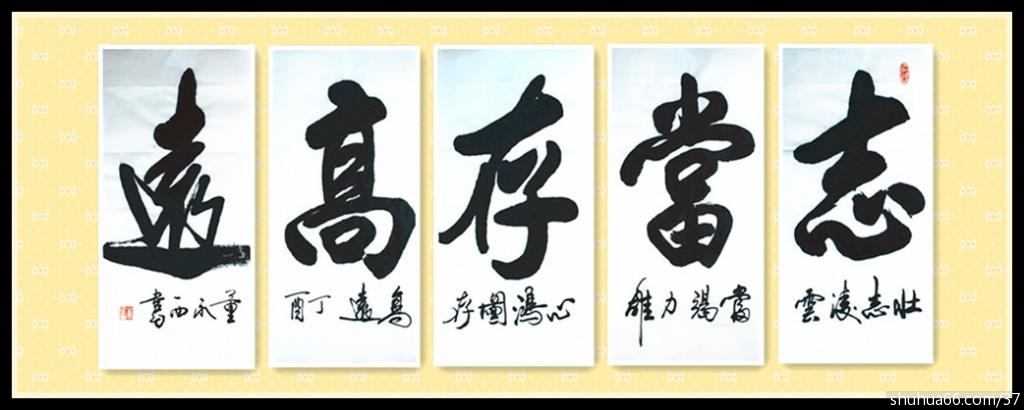 志當存高遠
壯志凌雲 當竭力雄 心鴻圖存 高遠丁酉 董永西書
shuhua66.com/37